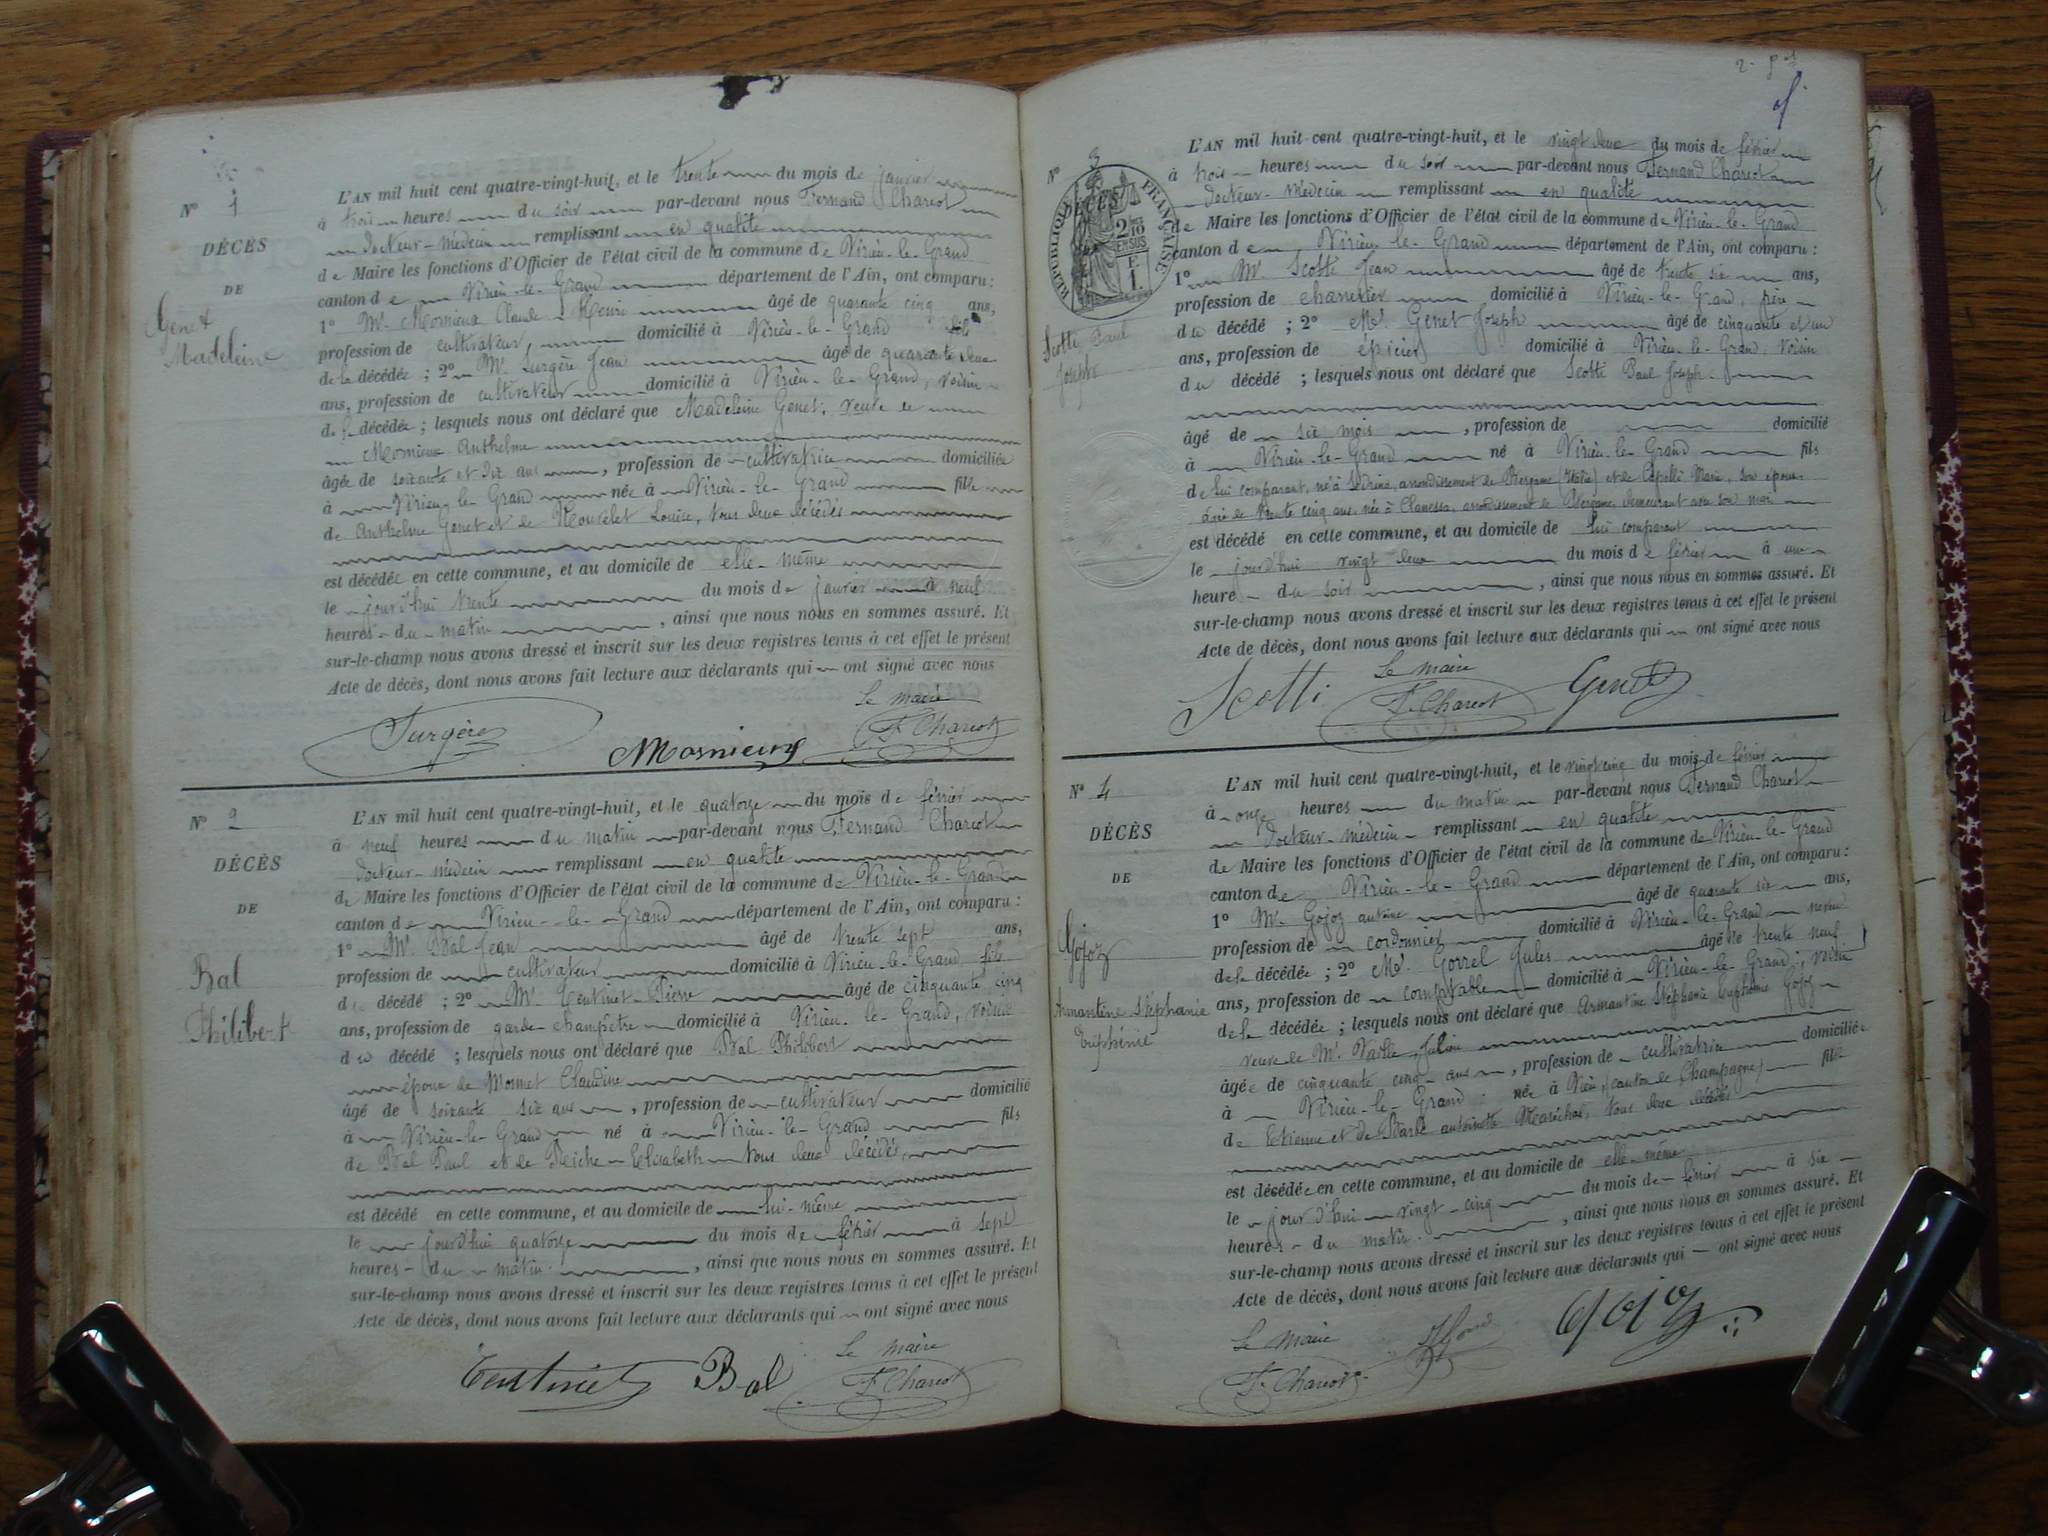 N° 1
DÉCÈS
DE
Genet
Madeleine
L'AN mil huit cent quatre-vingt-huit, et le trente du mois de janvier
à trois heures du soir par-devant nous Fernand Charcot
docteur-médecin remplissant en qualité
de Maire les fonctions d'Officier de l'état civil de la commune de Virieu-le-Grand
canton de Virieu-le-Grand département de l'Ain, ont comparu :
1° Mr Mornieux Claude Henri âgé de quarante cinq ans,
profession de cultivateur, domicilié à Virieu-le-Grand fils
de la décédée ; 2° Mr Surgère Jean âgé de quarante deux
ans, profession de cultivateur domicilié à Virieu-le-Grand, voisin
de la décédée ; lesquels nous ont déclaré que Madeleine Genet, veuve de
Mornieux Anthelme
âgée de soixante et dix ans, profession de cultivatrice domiciliée
à Virieu-le-Grand née à Virieu-le-Grand fille
de Anthelme Genet et de Louise, tous deux décédés
est décédée en cette commune, et au domicile de elle-même
le jourd'hui trente du mois de janvier à neuf
heures du matin, ainsi que nous nous en sommes assuré. Et
sur-le-champ nous avons dressé et inscrit sur les deux registres tenus à cet effet le présent
Acte de décès, dont nous avons fait lecture aux déclarants qui ont signé avec nous
Le maire
Surgère Mornieux F. Charcot
N° 2
DÉCÈS
DE
Bal
Philibert
L'AN mil huit cent quatre-vingt-huit, et le quatorze du mois de février
à neuf heures du matin par-devant nous Fernand Charcot
docteur-médecin remplissant en qualité
de Maire les fonctions d'Officier de l'état civil de la commune de Virieu-le-Grand
canton de Virieu-le-Grand département de l'Ain, ont comparu :
1° Mr Bal Jean âgé de trente sept ans,
profession de cultivateur domicilié à Virieu-le-Grand fils
du décédé ; 2° Mr Tentinet Pierre âgé de cinquante cinq
ans, profession de garde-champêtre domicilié à Virieu-le-Grand, voisin
du décédé ; lesquels nous ont déclaré que Bal Philibert
époux de Monnet Claudine
âgé de soixante six ans, profession de cultivateur domicilié
à Virieu-le-Grand né à Virieu-le-Grand fils
de Bal Paul et de Elisabeth tous deux décédés,
est décédé en cette commune, et au domicile de lui-même
le jourd'hui quatorze du mois de février à sept
heures du matin, ainsi que nous nous en sommes assuré. Et
sur-le-champ nous avons dressé et inscrit sur les deux registres tenus à cet effet le présent
Acte de décès, dont nous avons fait lecture aux déclarants qui ont signé avec nous
Le maire
Tentinet Bal F. Charcot
N° 3
DÉCÈS
RÉPUBLIQUE FRANÇAISE
2/10 EN SUS
F. 1.
Scotti Paul
Joseph
L'AN mil huit cent quatre-vingt-huit, et le vingt deux du mois de février
à trois heures du soir par-devant nous Fernand Charcot
docteur-médecin remplissant en qualité
de Maire les fonctions d'Officier de l'état civil de la commune de Virieu-le-Grand
canton de Virieu-le-Grand département de l'Ain, ont comparu :
1° Mr Scotti Jean âgé de trente six ans,
profession de domicilié à Virieu-le-Grand, père
du décédé ; 2° Mr Genet Joseph âgé de cinquante et un
ans, profession de épicier domicilié à Virieu-le-Grand, voisin
du décédé ; lesquels nous ont déclaré que Scotti Paul Joseph
âgé de six mois, profession de domicilié
à Virieu-le-Grand né à Virieu-le-Grand fils
de lui comparant, né à Sedrina, arrondissement de Bergame (Italie) et de Capelli Marie, son épouse
âgée de trente cinq ans née à Clanezzo, arrondissement de Bergame, demeurant avec son mari
est décédé en cette commune, et au domicile de lui comparant
le jourd'hui vingt deux du mois de février à une
heure du soir, ainsi que nous nous en sommes assuré. Et
sur-le-champ nous avons dressé et inscrit sur les deux registres tenus à cet effet le présent
Acte de décès, dont nous avons fait lecture aux déclarants qui ont signé avec nous
Le maire
Scotti F. Charcot Genet
N° 4
DÉCÈS
DE
Gojoz
Armantine Stéphanie
Euphémie
L'AN mil huit cent quatre-vingt-huit, et le vingt cinq du mois de février
à onze heures du matin par-devant nous Fernand Charcot
docteur-médecin remplissant en qualité
de Maire les fonctions d'Officier de l'état civil de la commune de Virieu-le-Grand
canton de Virieu-le-Grand département de l'Ain, ont comparu :
1° Mr Gojoz Antoine âgé de quarante six ans,
profession de cordonnier domicilié à Virieu-le-Grand neveu
de la décédée ; 2° Mr Gorrel Jules âgé de trente neuf
ans, profession de comptable domicilié à Virieu-le-Grand, voisin
de la décédée ; lesquels nous ont déclaré que Armantine Stéphanie Euphémie Gojoz
veuve de Mr Julien
âgée de cinquante cinq ans, profession de cultivatrice domiciliée
à Virieu-le-Grand née à Vieu (canton de Champagne) fille
de Etienne et de antoinette Maréchal, tous deux décédés
est décédée en cette commune, et au domicile de elle-même
le jour d'hui vingt-cinq du mois de février à six
heures du matin, ainsi que nous nous en sommes assuré. Et
sur-le-champ nous avons dressé et inscrit sur les deux registres tenus à cet effet le présent
Acte de décès, dont nous avons fait lecture aux déclarants qui ont signé avec nous
Le maire
F. Charcot Gojoz